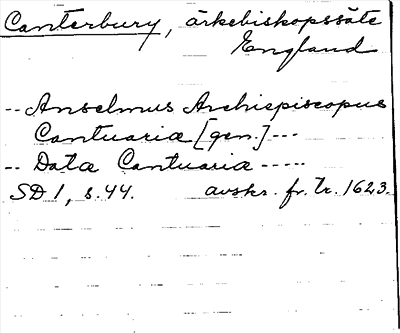 Canterbury, ärkebiskopssäte
England
-- Anselmus Archiepiscopus
Cantuariæ [gen.] ---
-- Data Cantuariæ -----
SD 1, s. 44. avskr. fr. tr. 1623.